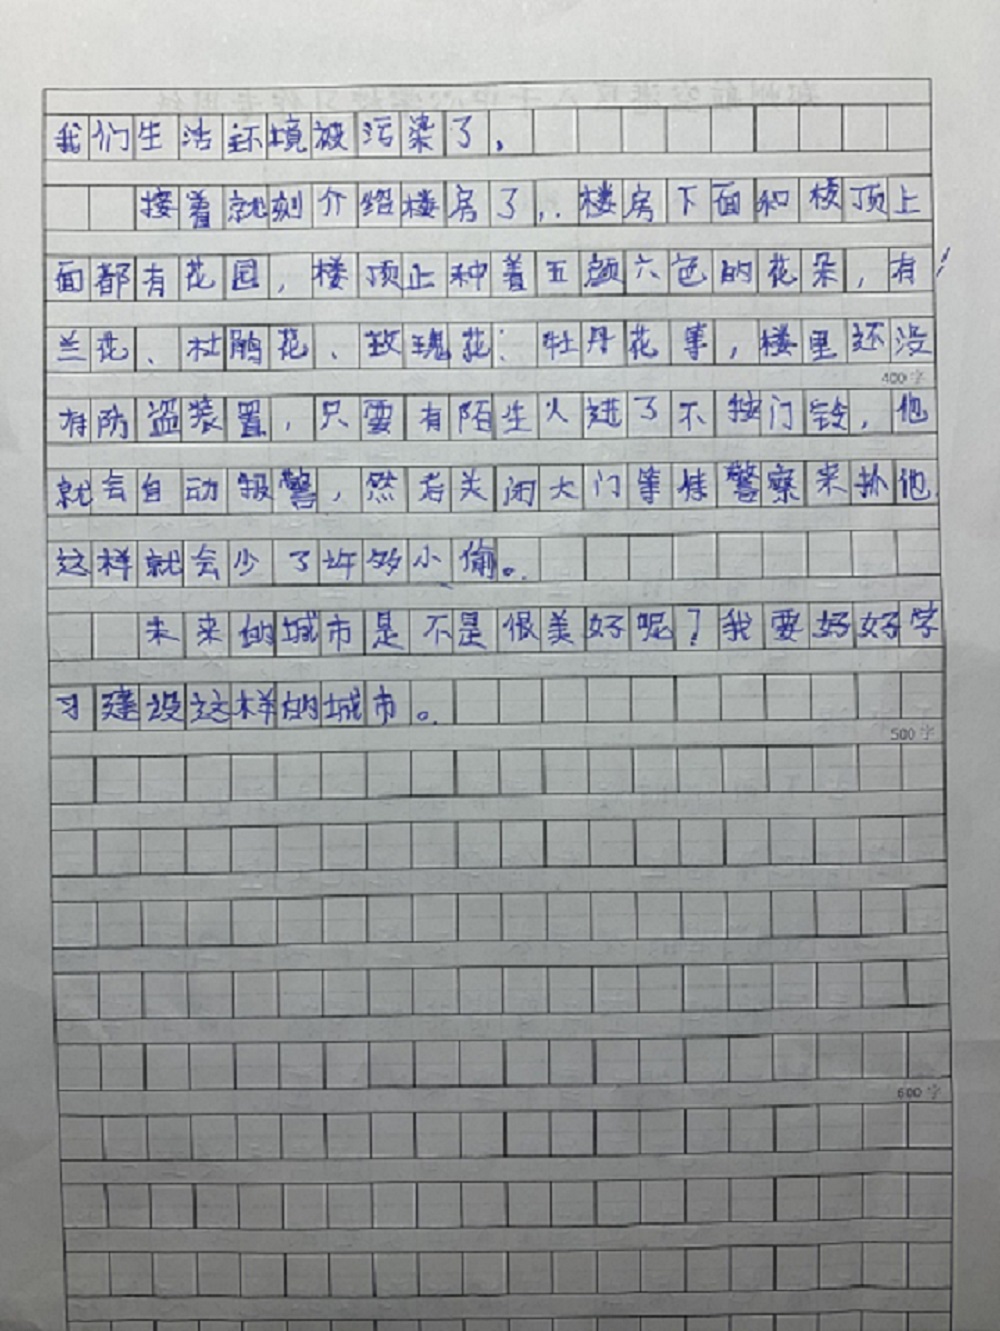 我们生活环境被污染了,
接着就刻介绍楼房了,.楼房下面和楼顶上
面都有花园,楼顶止种着五颜六色的花朵,有
兰花、杜鹃花、玫瑰花:牡丹花事,楼里还没
400字
有防盗装置,只要有陌生人进了不按门铃,他
就会自动报警,然后关闭大门等候警察来抓他.
这样就会少了许多小偷。
未来的城市是不是很美好呢?我要好好学
习建设这样的城市。
500字
600字